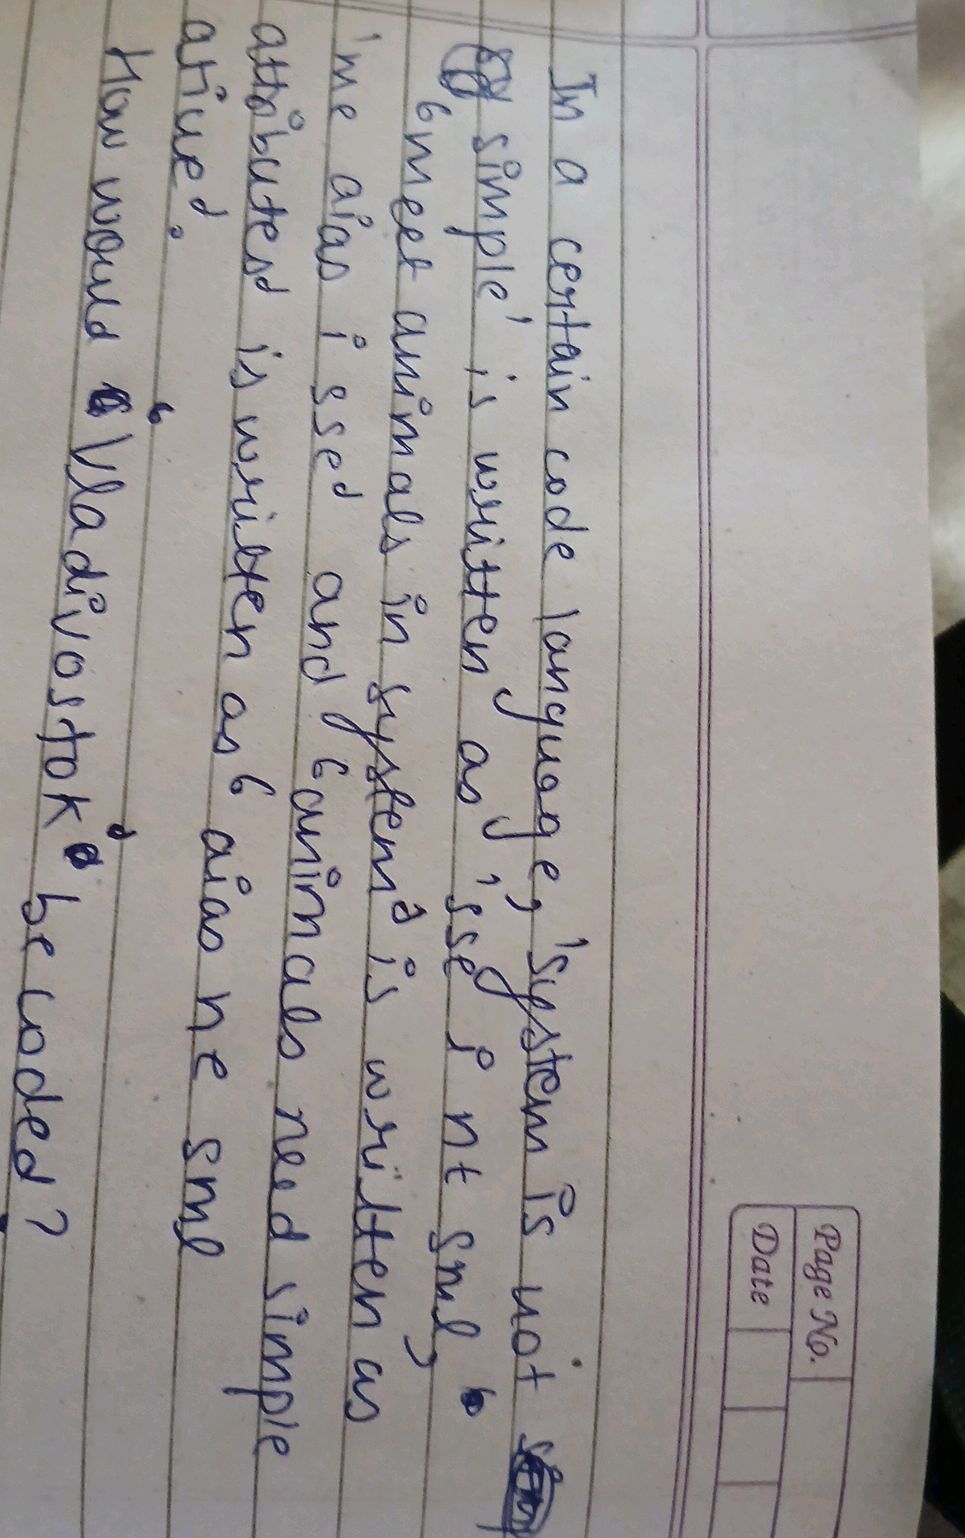 Page No.
Date
In a certain code language, 'system is not
simple' is written as 'sse i nt sml'
'meet animals in system' is written as
'me aias i sse' and 'animals need simple
attibutes' is written as 'aias ne sml
atiue'.
How would 'Vladivostok' be coded?